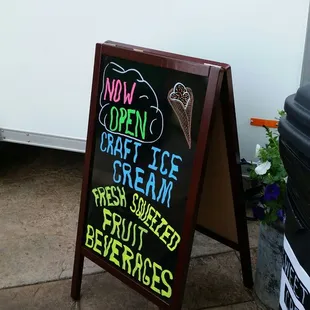 NOW
OPEN
CRAFT ICE
CREAM
FRESH SQUEEZED
FRUIT
BEVERAGES